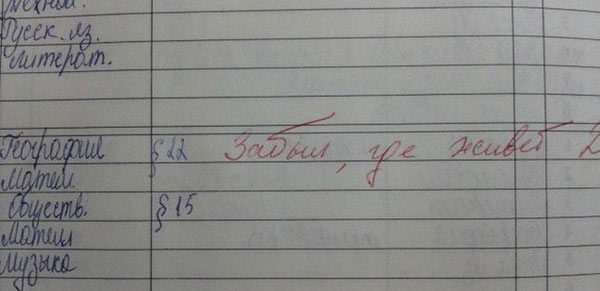 Русск. яз.
Литерат.
География §22 Забыл, где живёт
Матем.
Обществ. §15
Матем
Музыка